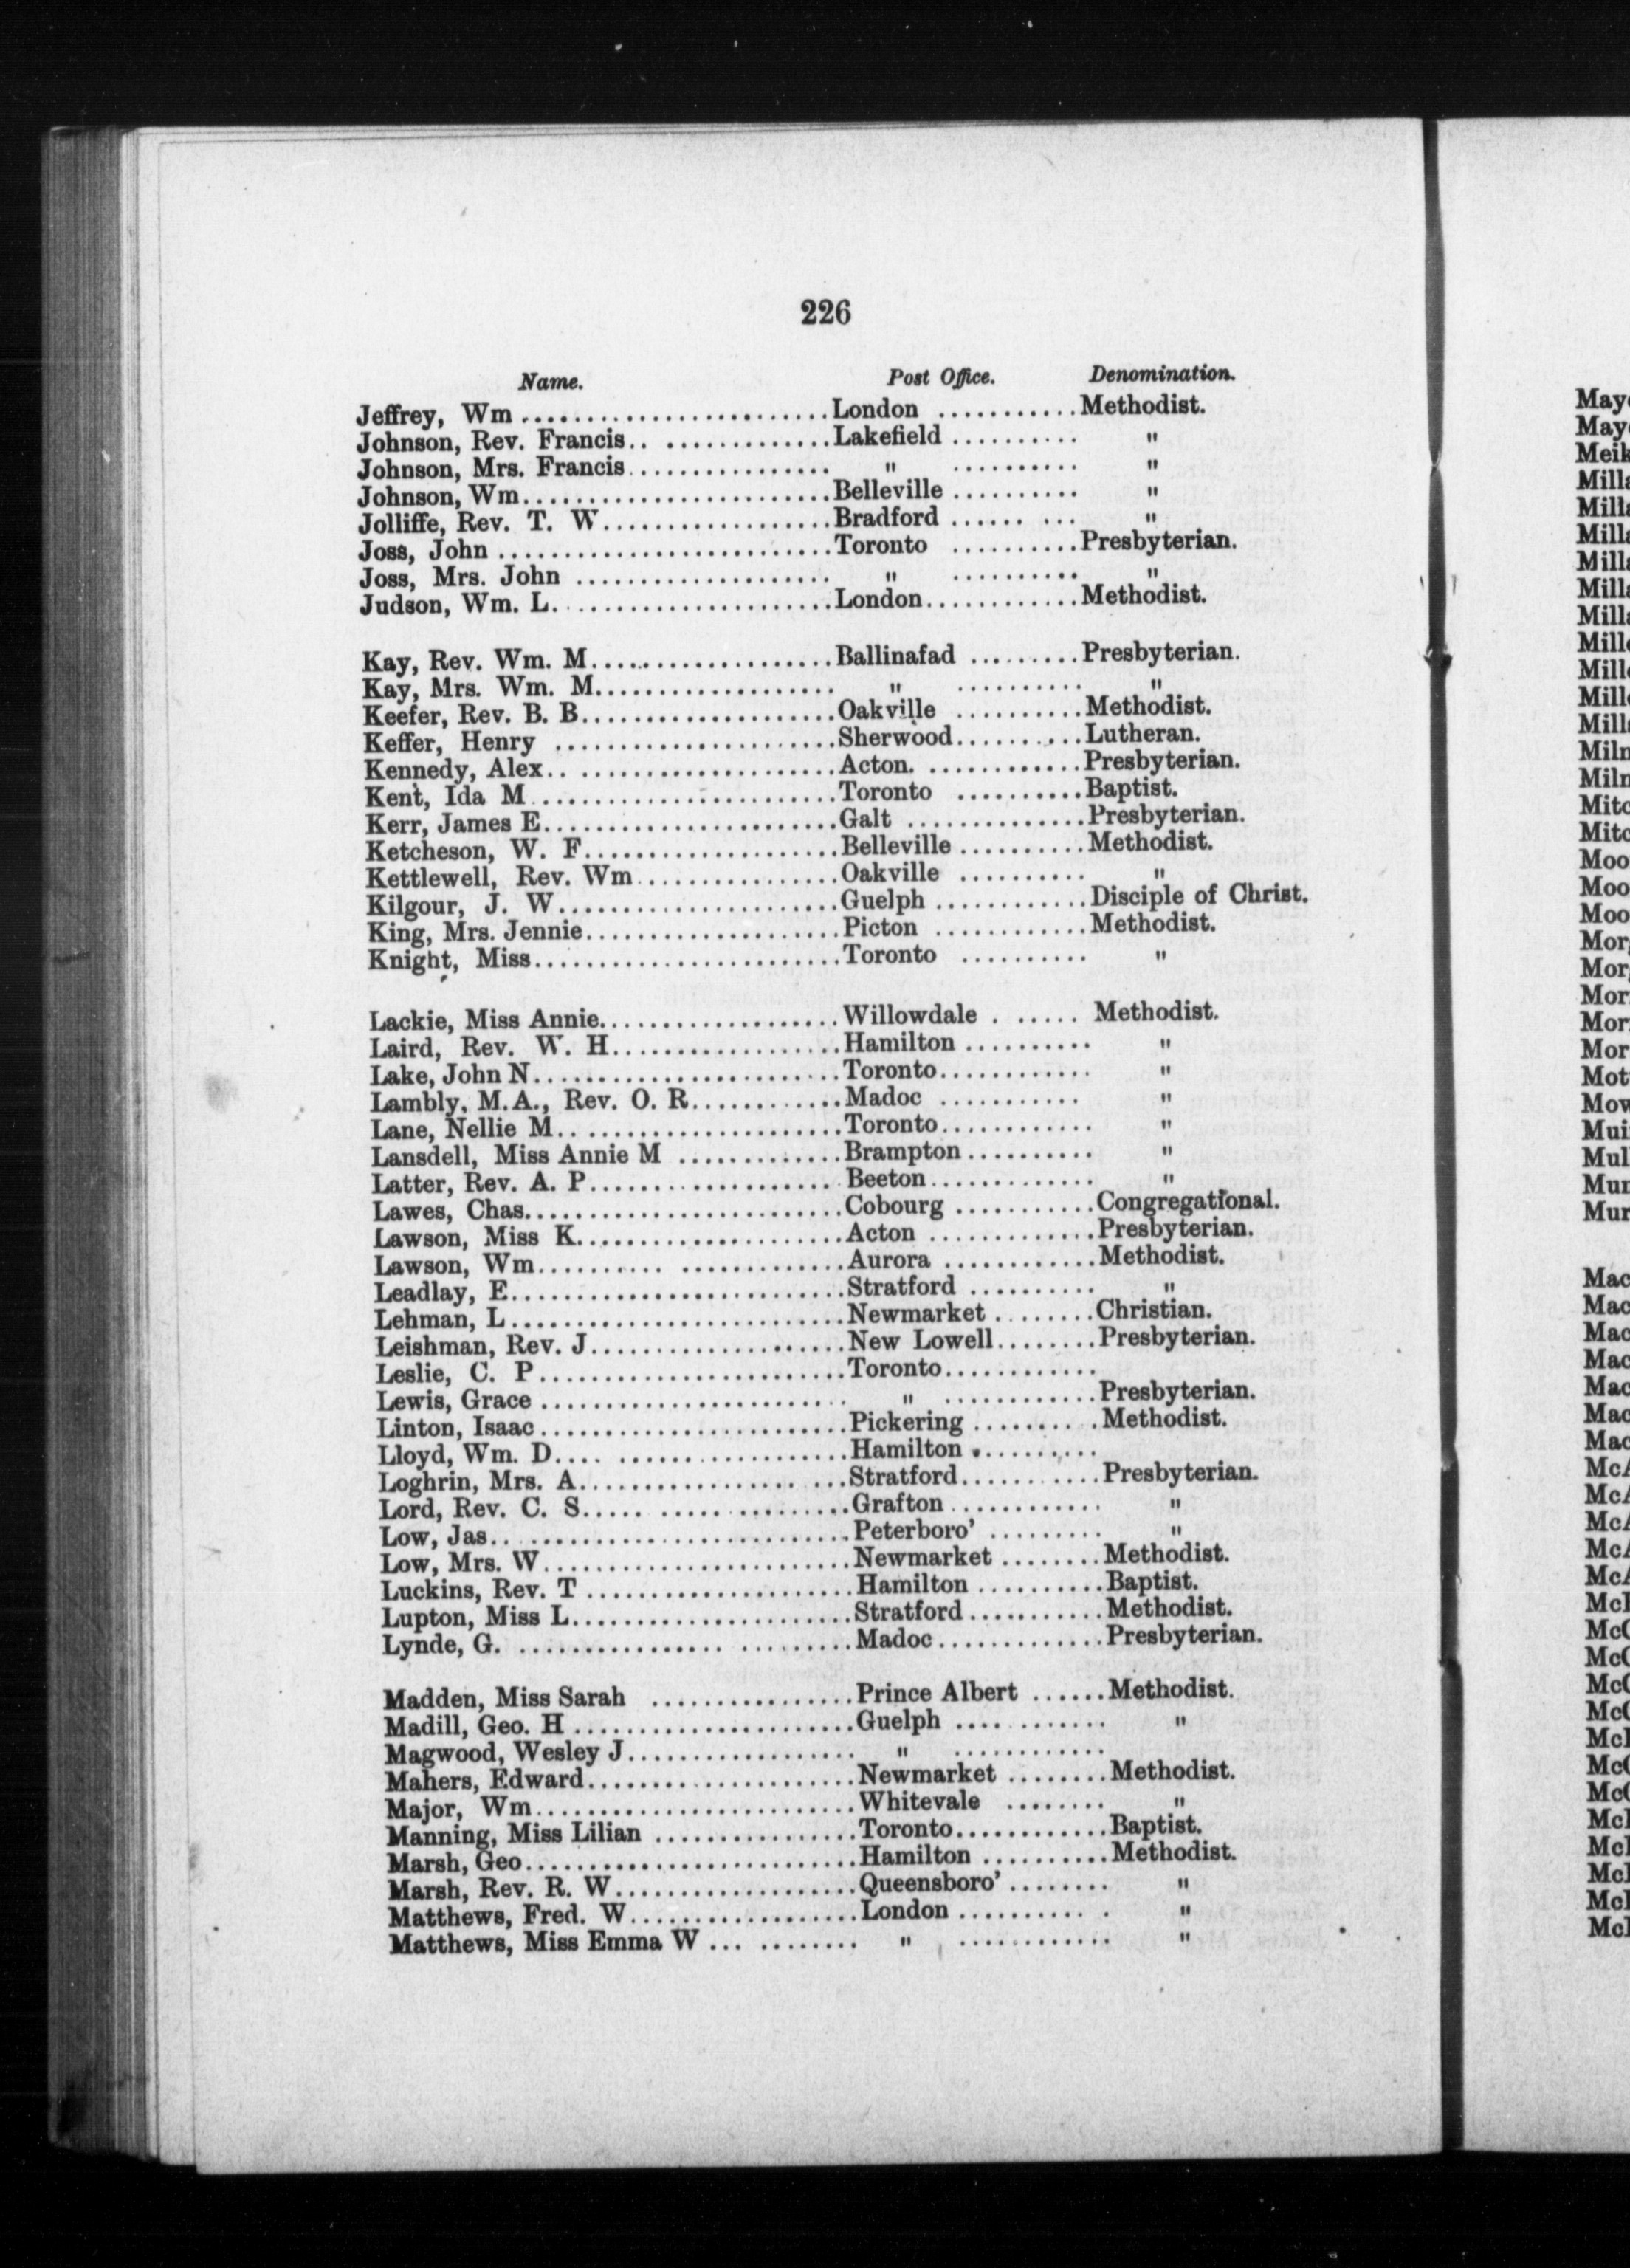 226
Name. Post Office. Denomination.
Jeffrey, Wm ........................ London ........... Methodist.
Johnson, Rev. Francis.. ............. Lakefield .......... "
Johnson, Mrs. Francis................ " .......... "
Johnson, Wm........................ Belleville .......... "
Jolliffe, Rev. T. W.................. Bradford ...... ... "
Joss, John .......................... Toronto .......... Presbyterian.
Joss, Mrs. John .................... " .......... "
Judson, Wm. L...................... London............ Methodist.
Kay, Rev. Wm. M................... Ballinafad ......... Presbyterian.
Kay, Mrs. Wm. M................... " .......... "
Keefer, Rev. B. B.................... Oakville .......... Methodist.
Keffer, Henry ...................... Sherwood.......... Lutheran.
Kennedy, Alex.. .................... Acton. ............ Presbyterian.
Kent, Ida M........................ Toronto .......... Baptist.
Kerr, James E....................... Galt .............. Presbyterian.
Ketcheson, W. F.................... Belleville .......... Methodist.
Kettlewell, Rev. Wm................ Oakville .......... "
Kilgour, J. W...................... Guelph ............ Disciple of Christ.
King, Mrs. Jennie.................... Picton ............ Methodist.
Knight, Miss........................ Toronto .......... "
Lackie, Miss Annie................... Willowdale . ..... Methodist.
Laird, Rev. W. H.................. Hamilton .......... "
Lake, John N........................ Toronto............ "
Lambly, M.A., Rev. O. R............ Madoc ........... "
Lane, Nellie M.. .................... Toronto............ "
Lansdell, Miss Annie M ............. Brampton.......... "
Latter, Rev. A. P................... Beeton............. "
Lawes, Chas......................... Cobourg ........... Congregational.
Lawson, Miss K..................... Acton ............. Presbyterian.
Lawson, Wm.......... ............. Aurora ............ Methodist.
Leadlay, E.......................... Stratford .......... "
Lehman, L.......................... Newmarket ........ Christian.
Leishman, Rev. J.................... New Lowell........ Presbyterian.
Leslie, C. P........................ Toronto............
Lewis, Grace ........................ " ............ Presbyterian.
Linton, Isaac ........................ Pickering .......... Methodist.
Lloyd, Wm. D.... .................. Hamilton ..........
Loghrin, Mrs. A................. .... Stratford........... Presbyterian.
Lord, Rev. C. S..... ............... Grafton ............ "
Low, Jas............................ Peterboro' ......... "
Low, Mrs. W........................ Newmarket ........ Methodist.
Luckins, Rev. T ..................... Hamilton .......... Baptist.
Lupton, Miss L...................... Stratford........... Methodist.
Lynde, G. ................ ......... Madoc............. Presbyterian.
Madden, Miss Sarah ................ Prince Albert ...... Methodist.
Madill, Geo. H ...................... Guelph ............ "
Magwood, Wesley J.................. " ............
Mahers, Edward..................... Newmarket ........ Methodist.
Major, Wm......................... Whitevale ........ "
Manning, Miss Lilian ................ Toronto............ Baptist.
Marsh, Geo.......................... Hamilton .......... Methodist.
Marsh, Rev. R. W................... Queensboro' ........ "
Matthews, Fred. W.................. London .......... . "
Matthews, Miss Emma W ... ........ " ............ "